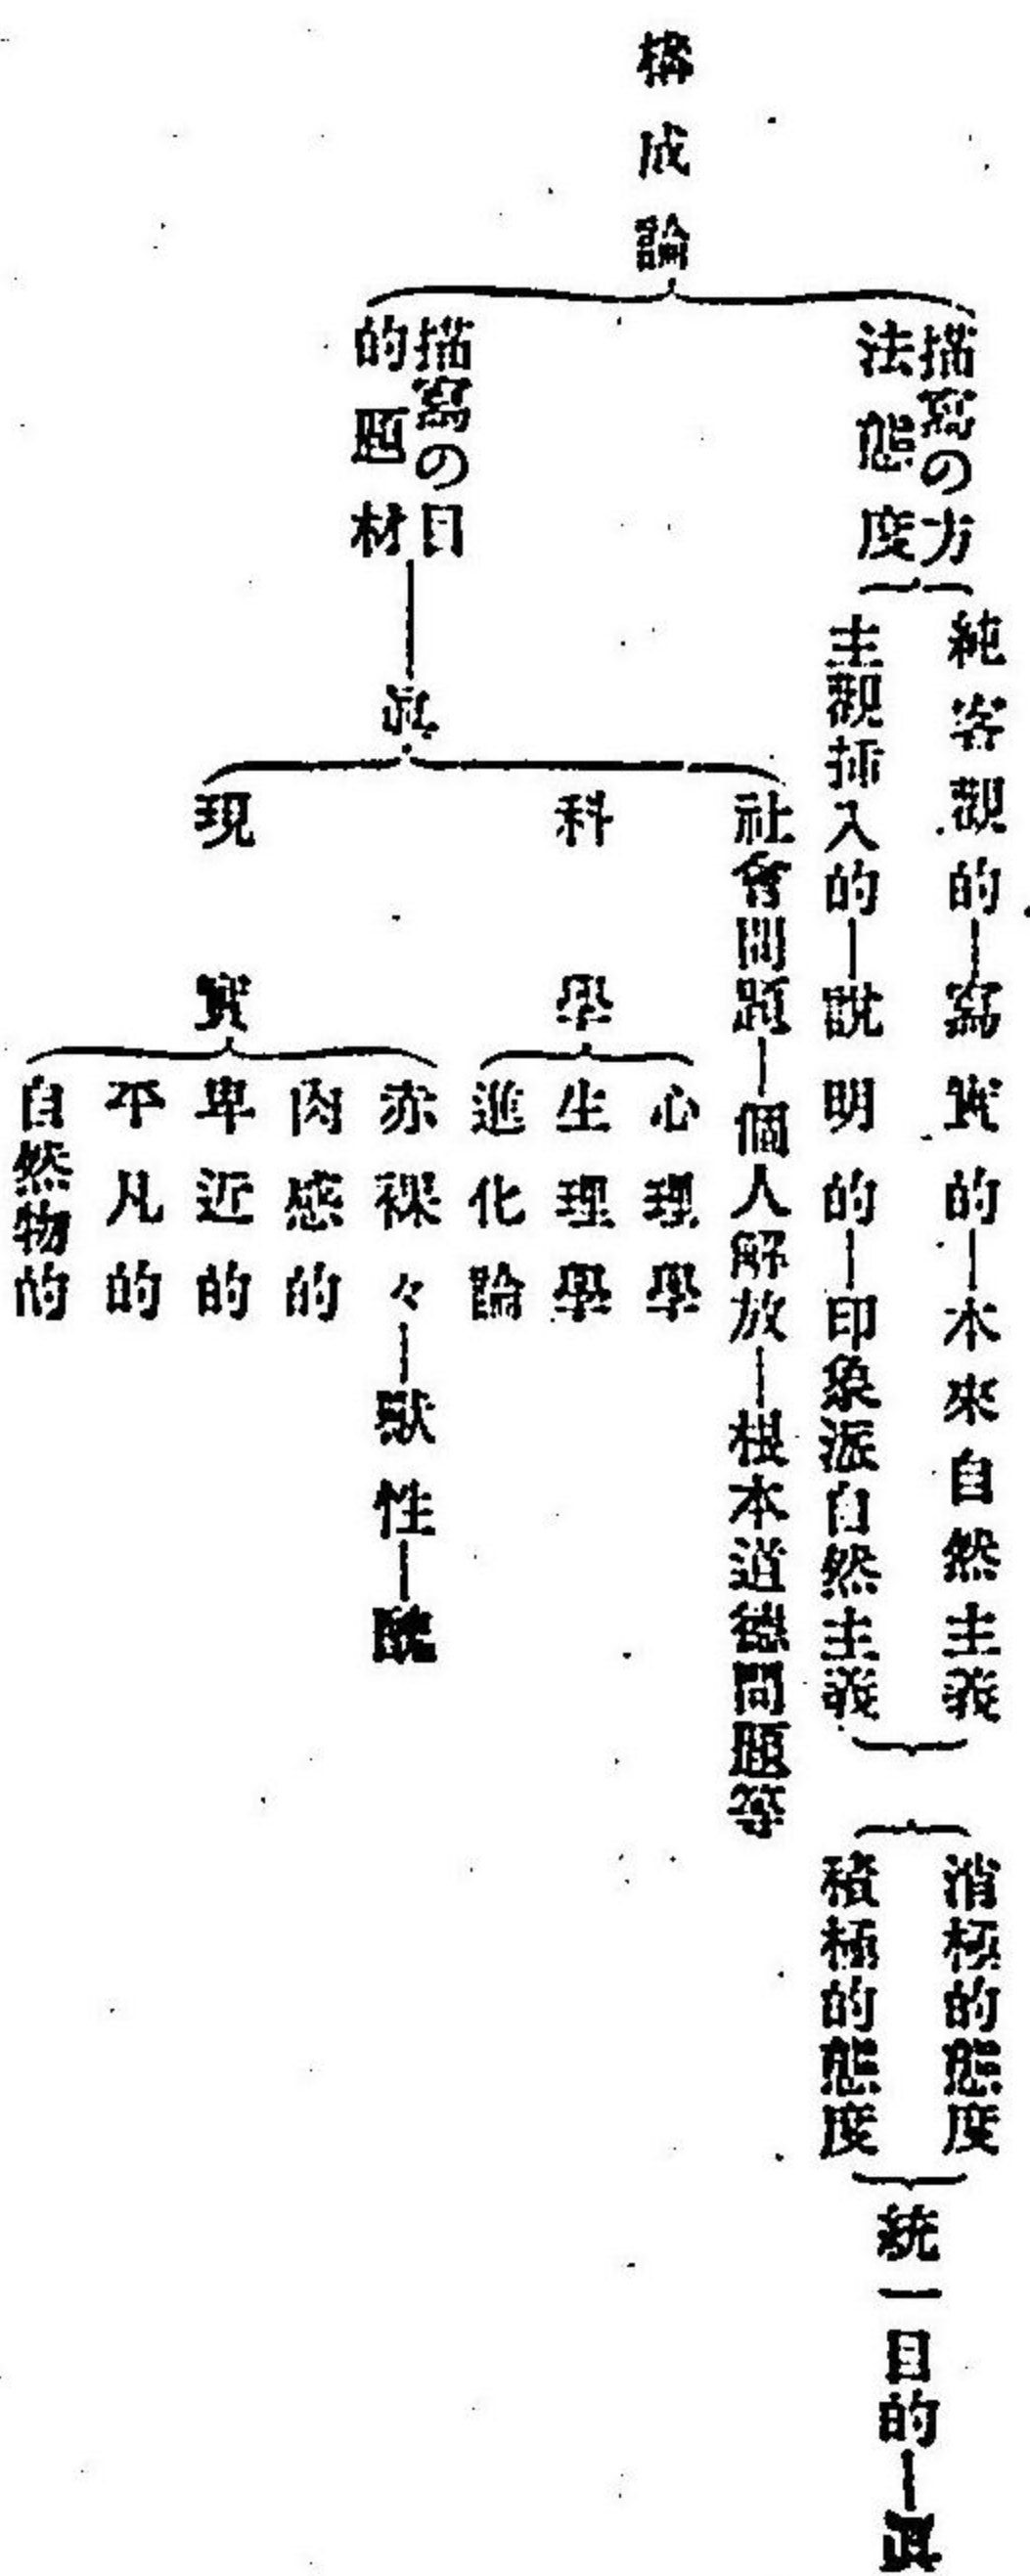 構成論
描寫の方
法態度
純客觀的―寫實的―本來自然主義
主觀挿入的―說明的―印象派自然主義
消極的態度
積極的態度
統一目的―眞
描寫の目
的題材―眞
社會問題―個人解放―根本道德問題等
科學
心理學
生理學
進化論
現實
赤裸々―獸性―醜
肉感的
卑近的
平凡的
自然物的